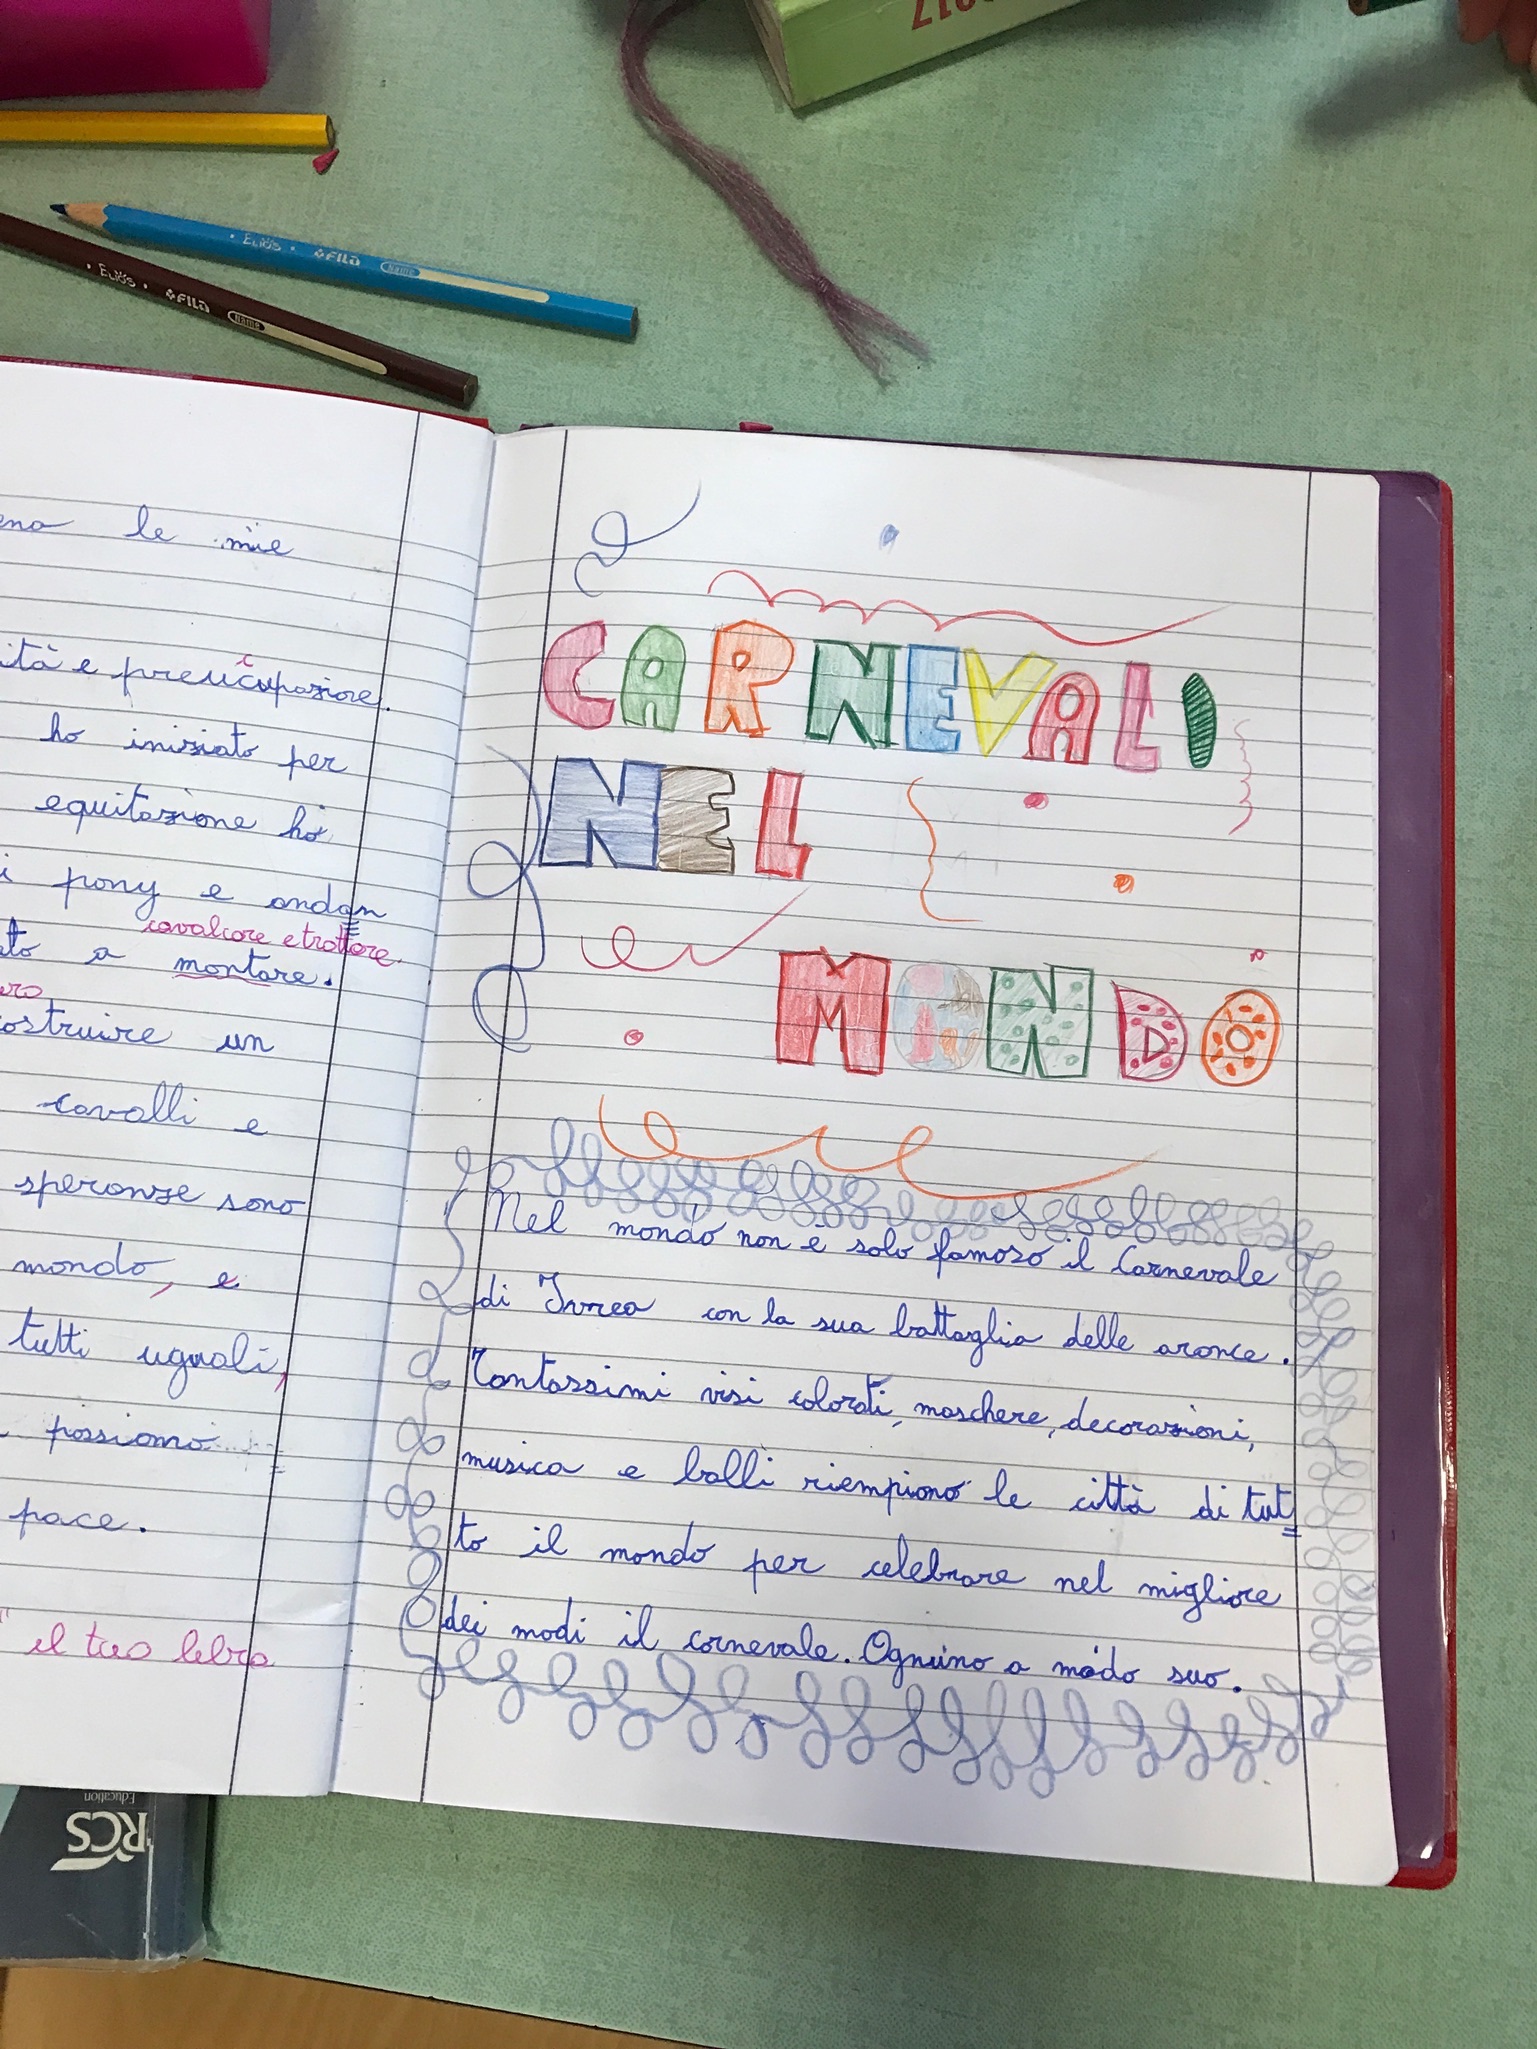 2017
Eliòs FILA Name
Eliòs FILA Name
le mie
ità e preuccupazione.
ho iniziato per
equitazione ho
i pony e andan
cavalcare e trottare
ato a montare.
costruire un
cavalli e
speranze sono
mondo, e
tutti uguali,
possiamo
pace.
il tuo libro
CARNEVALI
NEL
MONDO
Nel mondo non è solo famoso il Carnevale
di Ivrea con la sua battaglia delle arance.
Tantassimi visi colorati, maschere, decorazioni,
musica e balli riempiono le città di tut=
to il mondo per celebrare nel migliore
dei modi il carnevale. Ognuno a modo suo.
RCS
Education